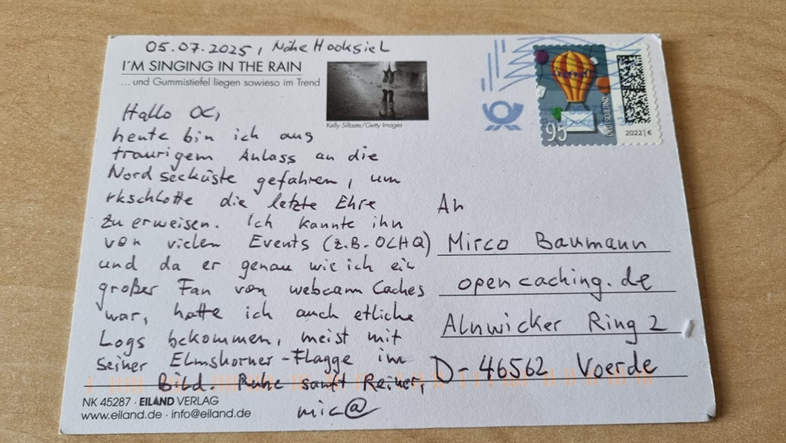 05.07.2025, Nähe Hooksiel
I'M SINGING IN THE RAIN
...und Gummistiefel liegen sowieso im Trend
Kelly Sillaste/Getty Images
Hallo OC,
heute bin ich aus
traurigem Anlass an die
Nordseeküste gefahren, um
rkschlotte die letzte Ehre
zu erweisen. Ich kannte ihn
von vielen Events (z.B. OCHQ)
und da er genau wie ich ein
großer Fan von webcam Caches
war, hatte ich auch etliche
Logs bekommen, meist mit
seiner Elmshorner-Flagge im
Bild. Ruhe sanft Reiner,
mic@
NK 45287 · EILAND VERLAG
www.eiland.de · info@eiland.de
95
2022 | €
An
Mirco Baumann
opencaching.de
Alnwicker Ring 2
D-46562 Voerde